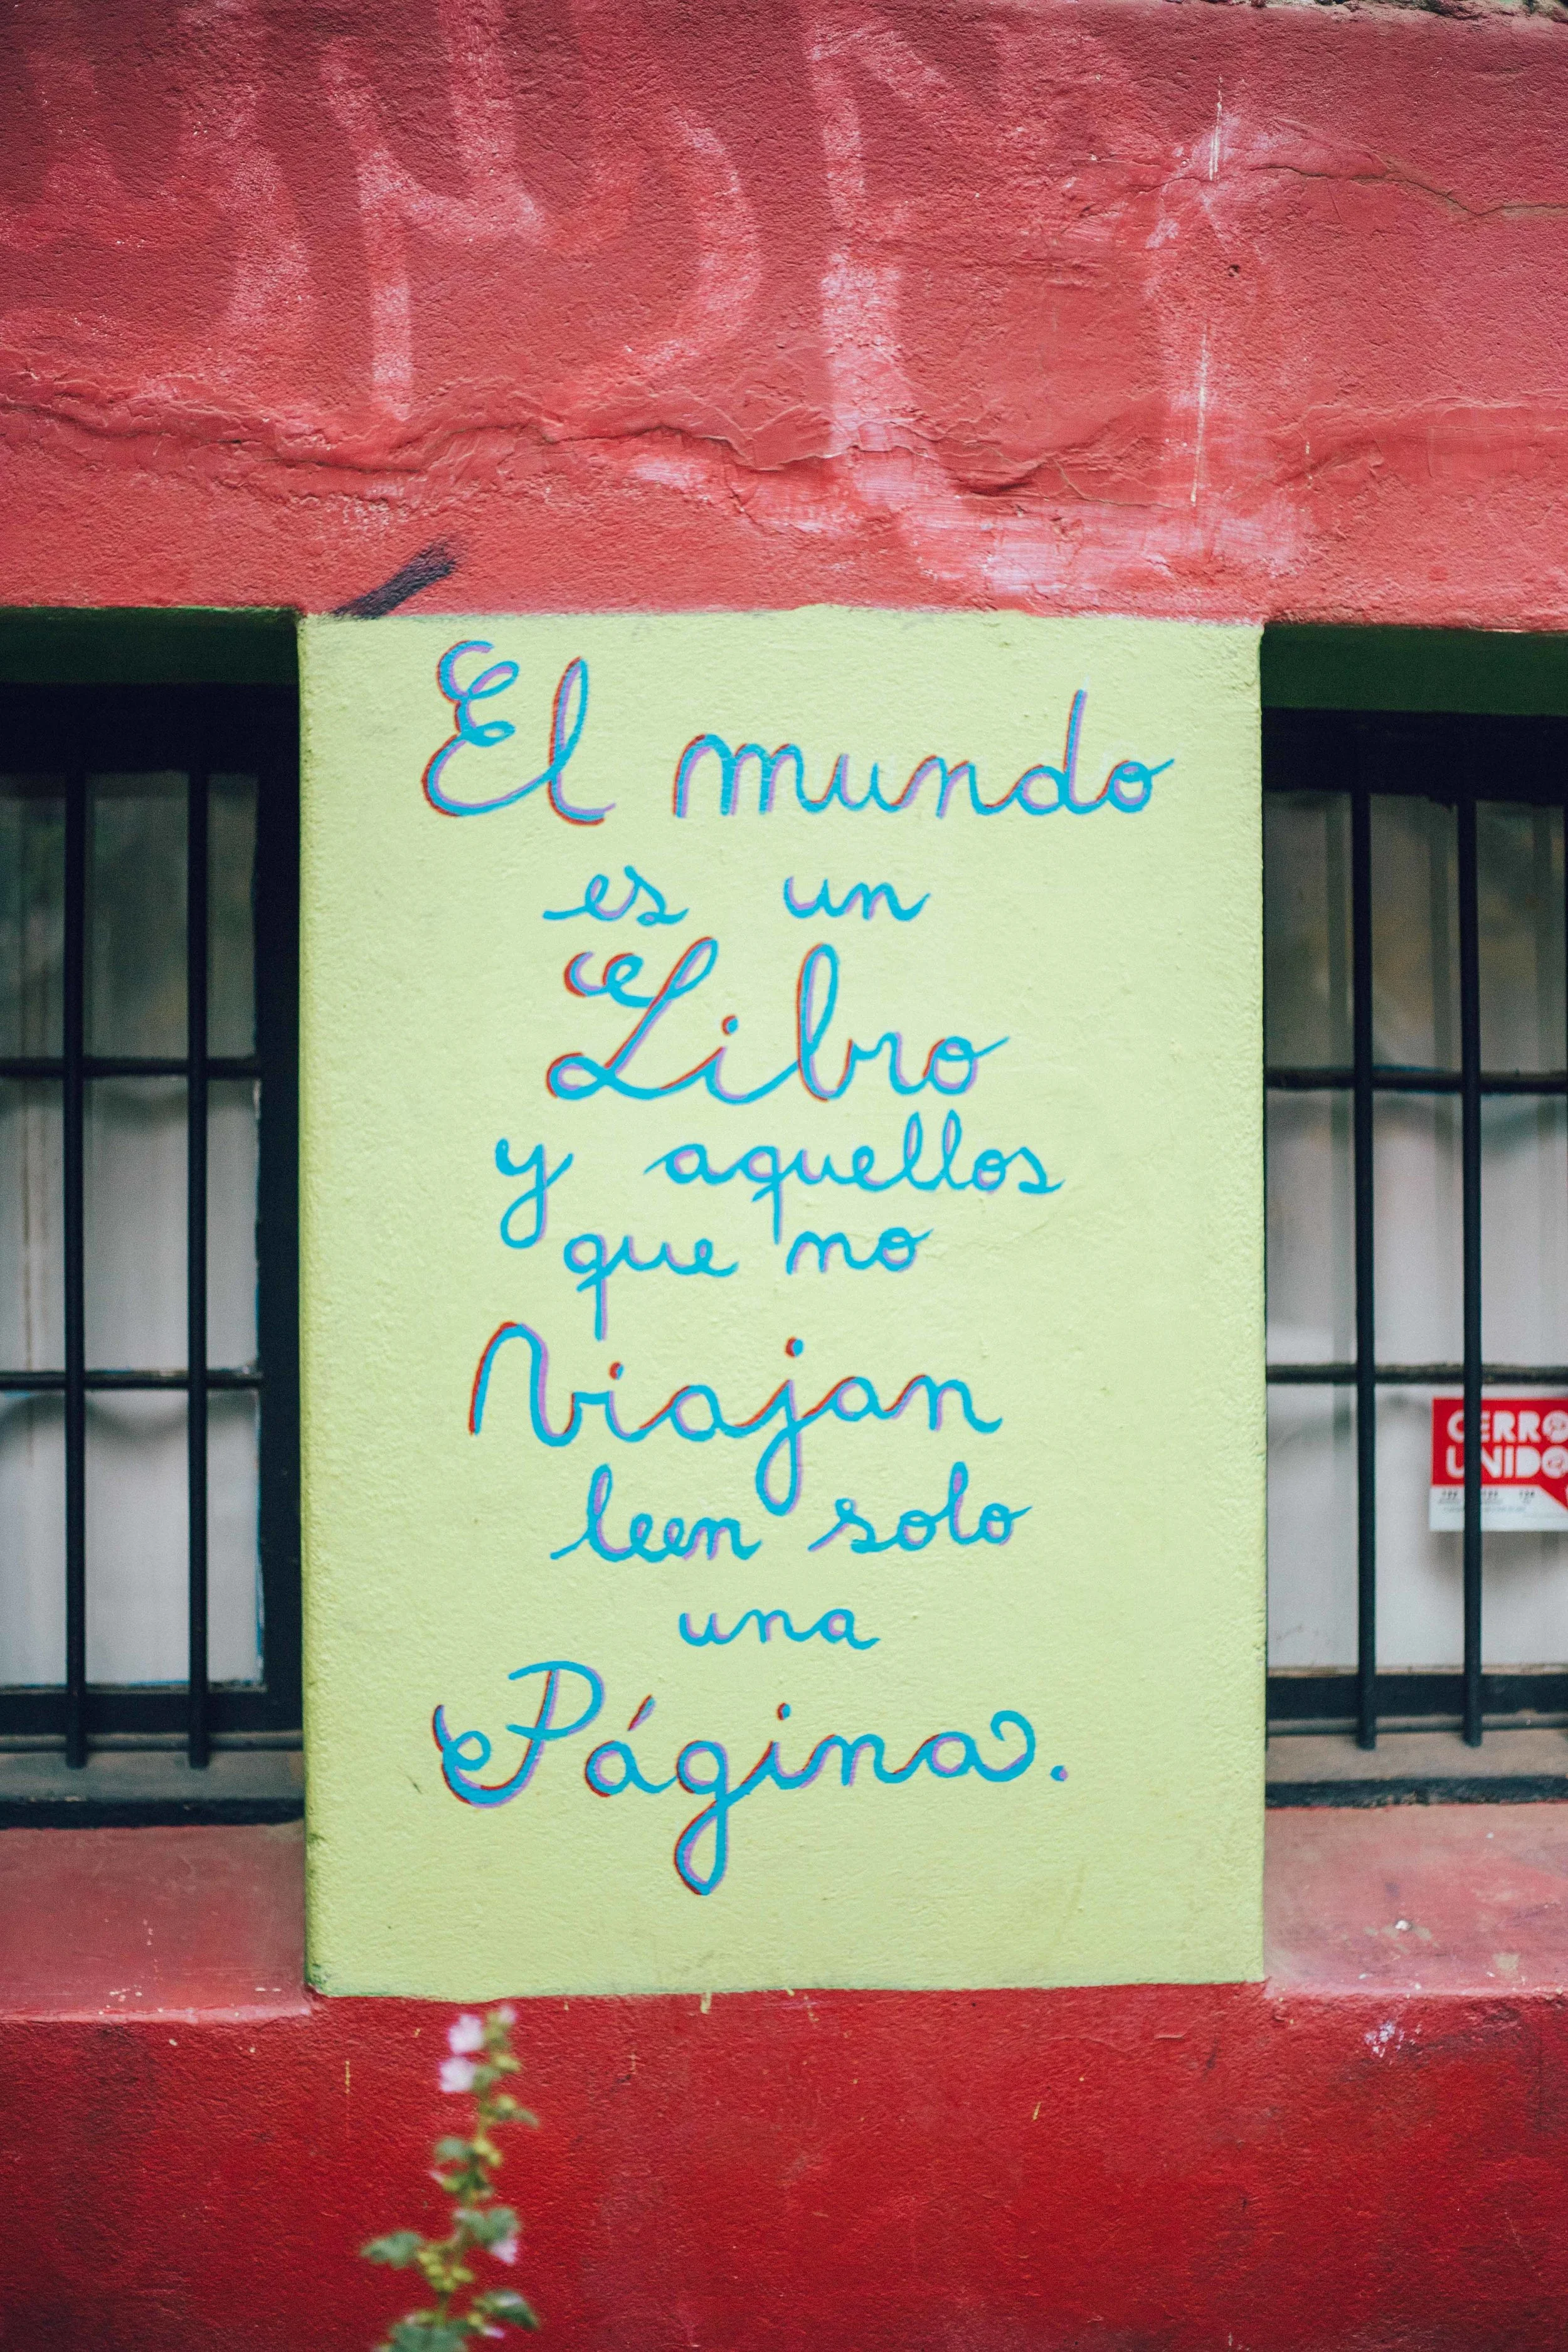 El mundo
es un
Libro
y aquellos
que no
Viajan
leen solo
una
Página.
CERRO
UNIDO